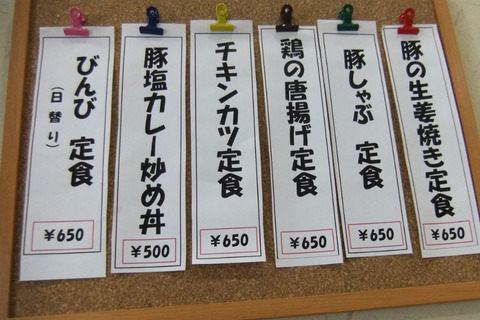 豚の生姜焼き定食
¥650
豚しゃぶ 定食
¥650
鶏の唐揚げ定食
¥650
チキンカツ定食
¥650
豚塩カレー炒め丼
¥500
びんび 定食
(日替り)
¥650